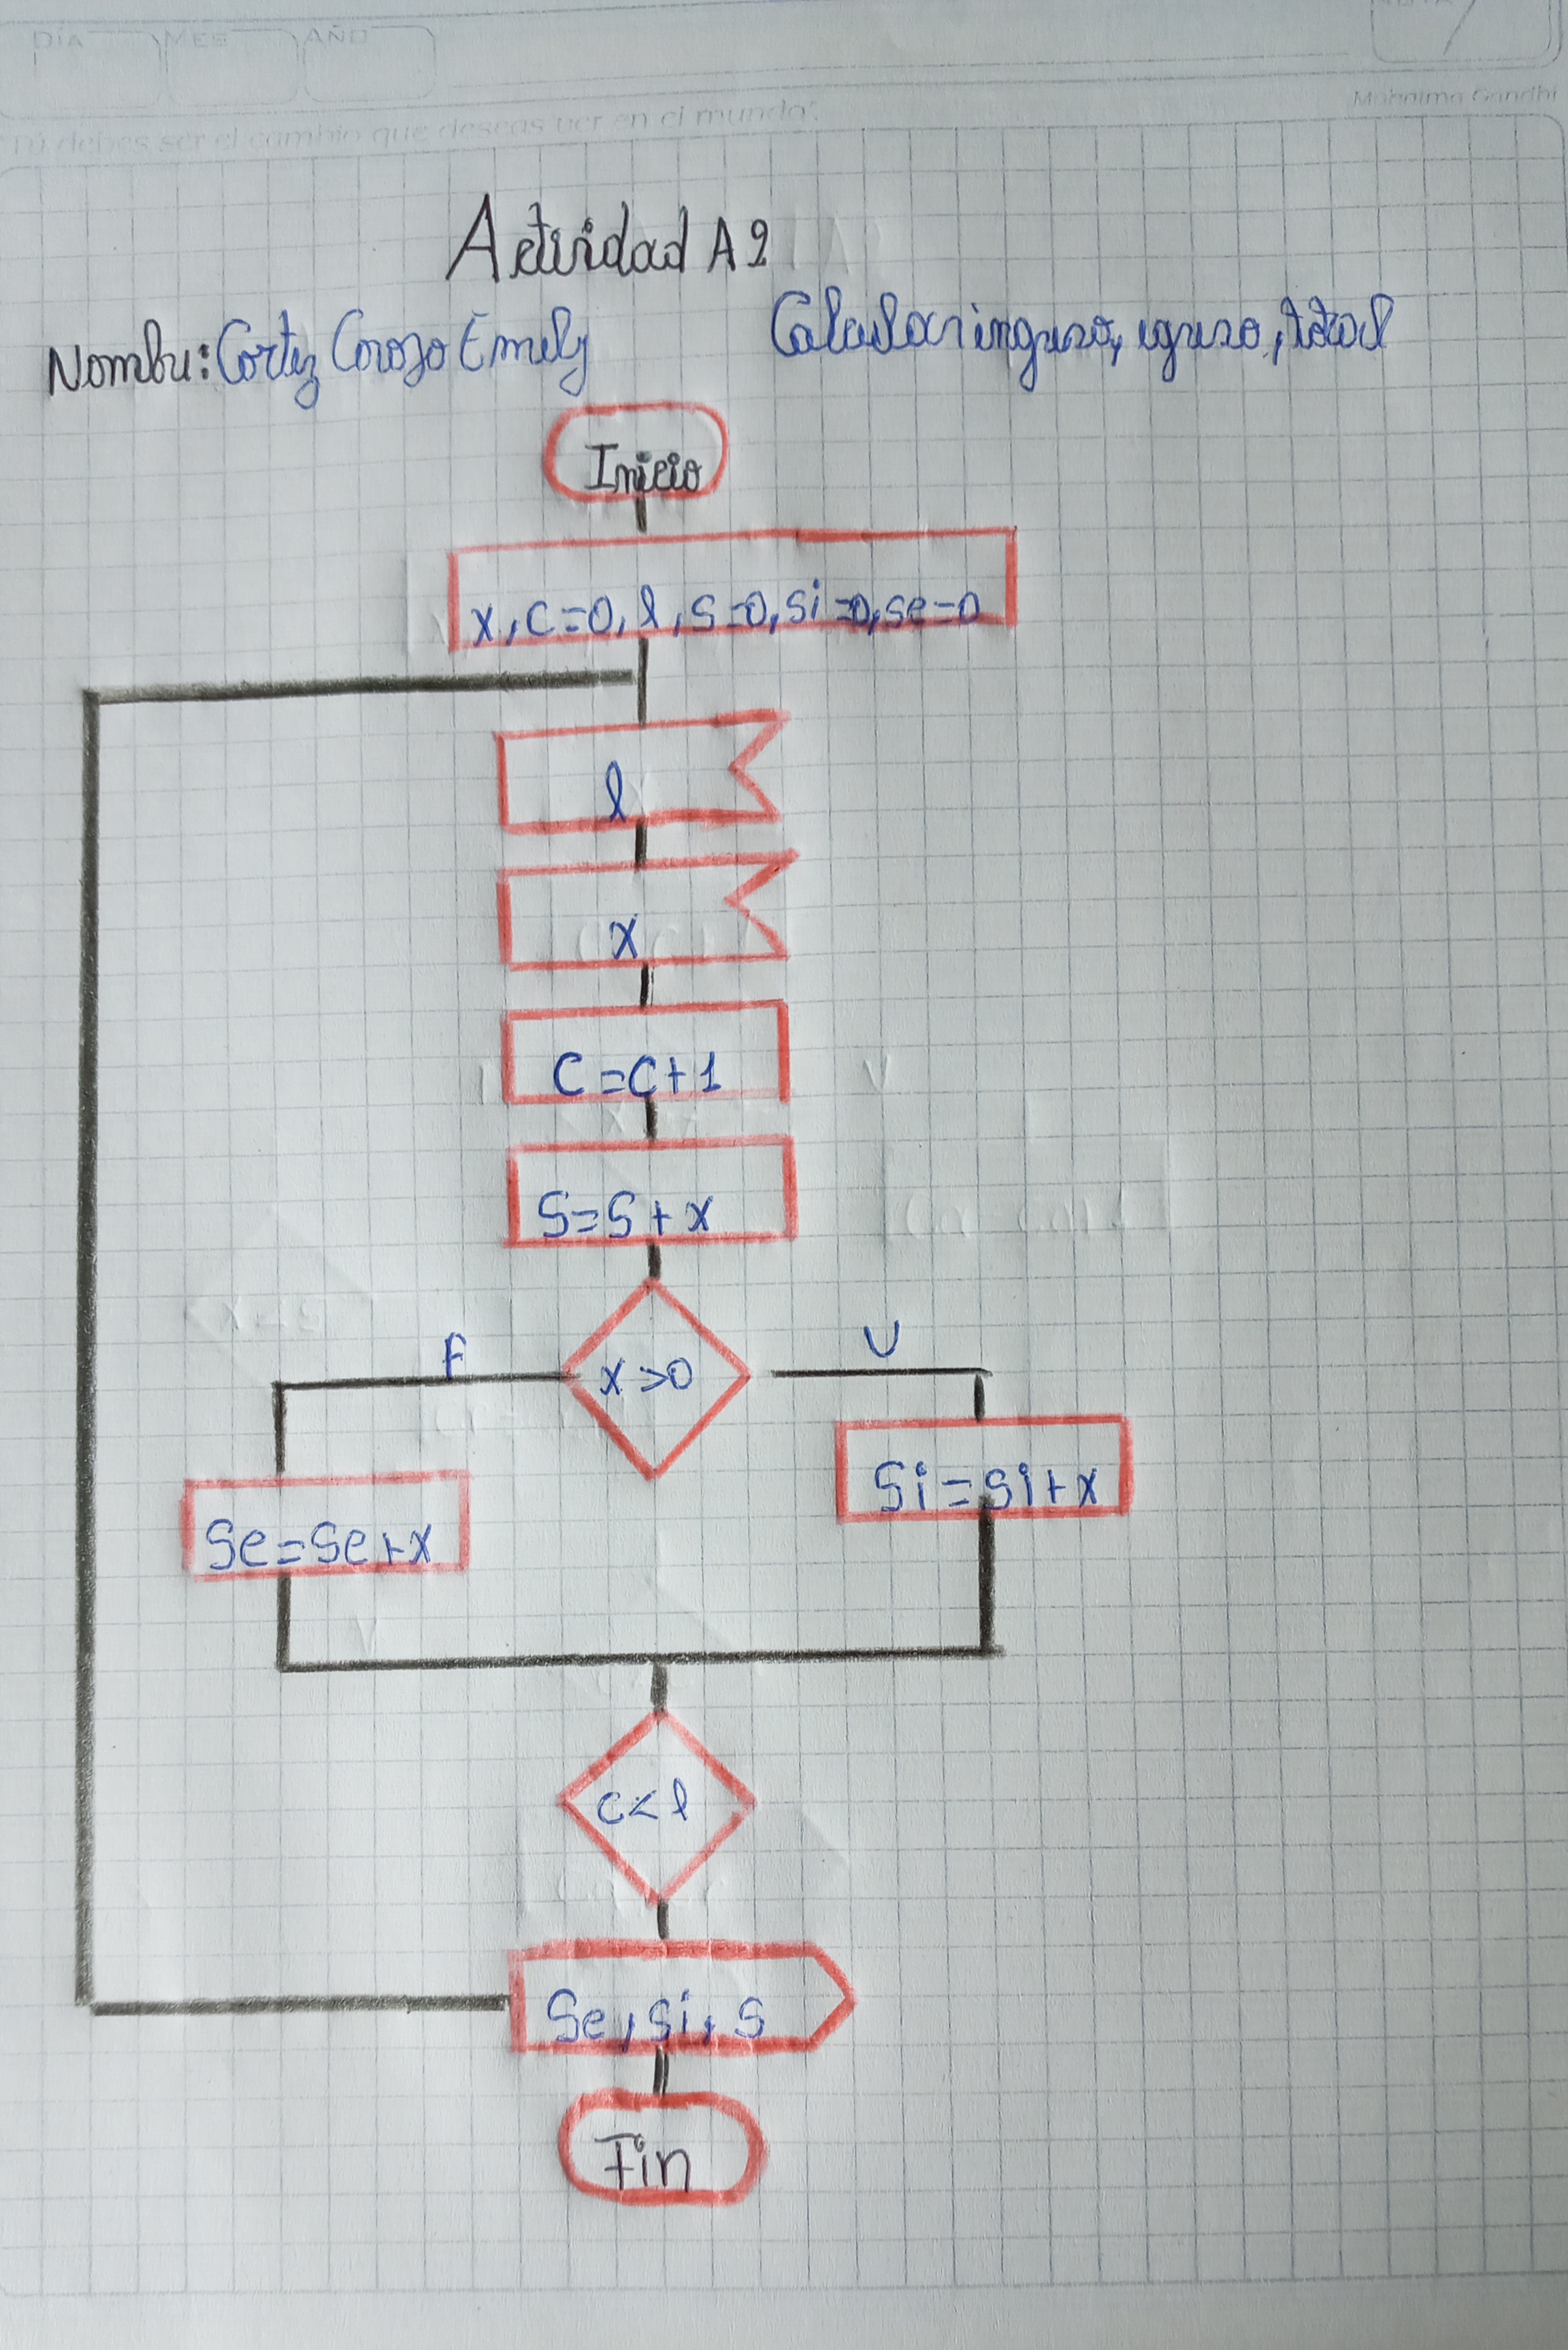 DÍA MES AÑO
"Tú debes ser el cambio que deseas ver en el mundo".
Mahatma Gandhi
Actividad A2
Nombre: Cortez Corozo Emely
Calcular ingreso, egreso, total
Inicio
x, c=0, l, s=0, si=0, se=0
l
x
C=C+1
S=S+x
F
x>0
V
Se=Se+x
Si=Si+x
c<l
Se, si, s
Fin